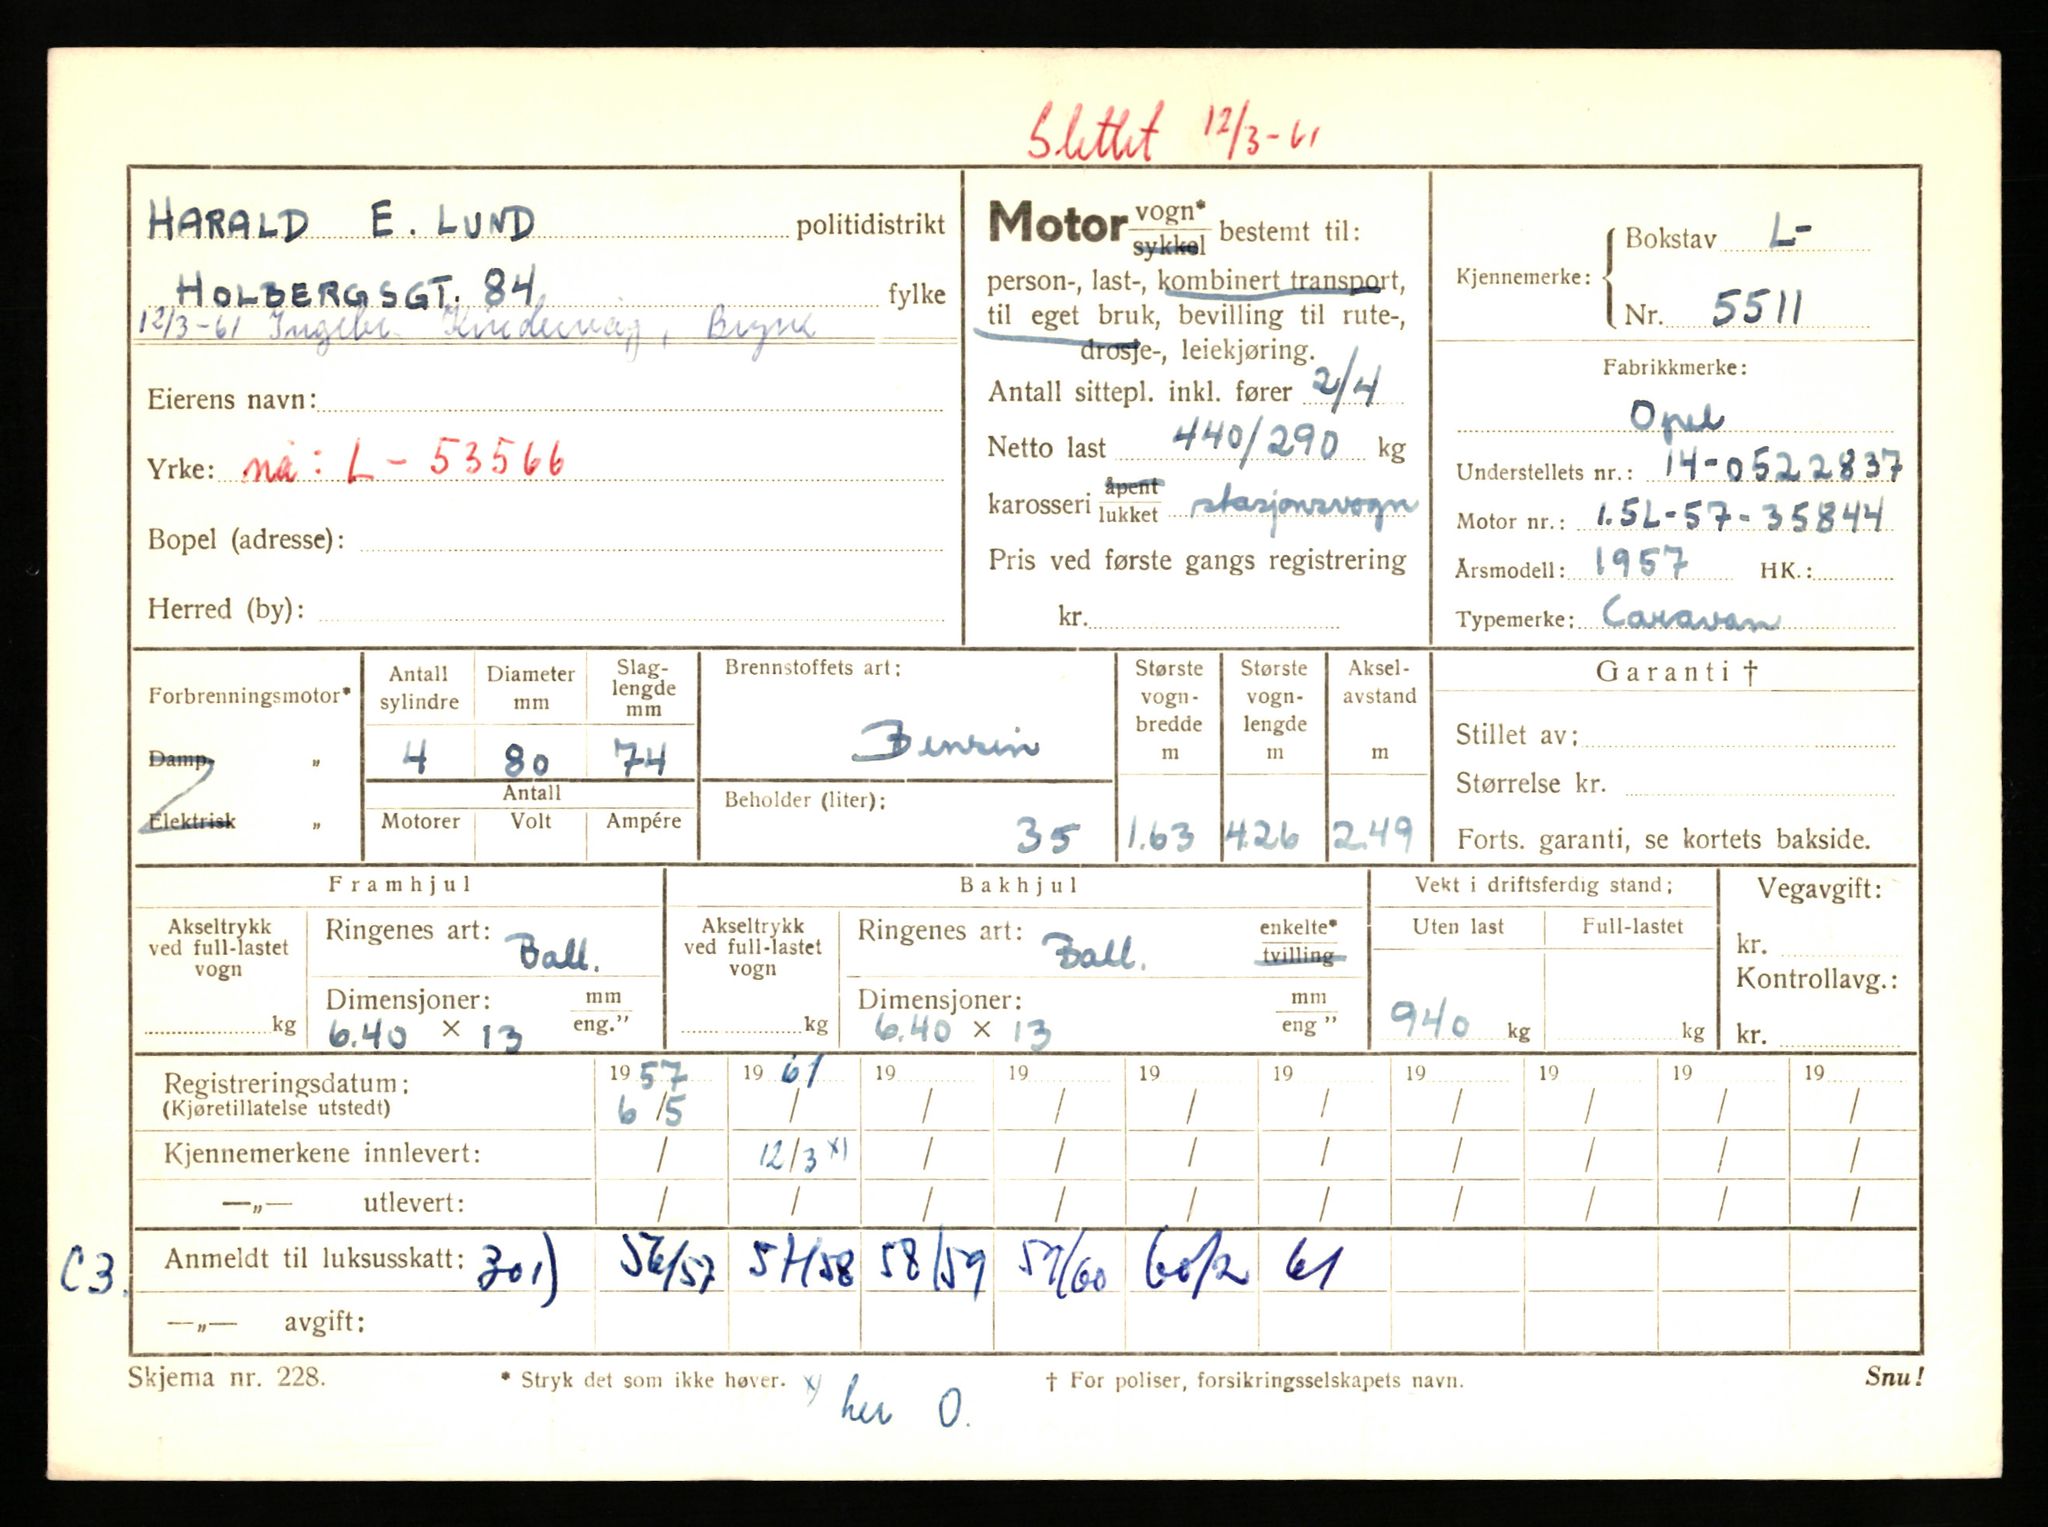 Slettet 12/3-61
HARALD E. LUND politidistrikt
HOLBERGSGT. 84 fylke
12/3-61
Eierens navn:
Yrke: nå: L - 53566
Bopel (adresse):
Herred (by):
Motor vogn* sykkel bestemt til:
person-, last-, kombinert transport,
til eget bruk, bevilling til rute-,
drosje-, leiekjøring.
Antall sittepl. inkl. fører 2/4
Netto last 440/290 kg
karosseri åpent lukket stasjonsvogn
Pris ved første gangs registrering
kr.
Kjennemerke: Bokstav L-
Nr. 5511
Fabrikkmerke:
Opel
Understellets nr.: 14-0522837
Motor nr.: 1.5L-57-35844
Årsmodell: 1957 HK.:
Typemerke: Caravan
Forbrenningsmotor*
Damp „
Elektrisk „
Antall sylindre Diameter mm Slag-lengde mm
4 80 74
Antall
Motorer Volt Ampére
Brennstoffets art:
Bensin
Beholder (liter):
35
Største vogn-bredde m Største vogn-lengde m Aksel-avstand m
1.63 4.26 2.49
Garanti †
Stillet av:
Størrelse kr.
Forts. garanti, se kortets bakside.
Framhjul
Akseltrykk ved full-lastet vogn
kg
Ringenes art: Ball.
Dimensjoner: mm eng."
6.40 × 13
Bakhjul
Akseltrykk ved full-lastet vogn
kg
Ringenes art: Ball. enkelte* tvilling
Dimensjoner: mm eng "
6.40 × 13
Vekt i driftsferdig stand:
Uten last Full-lastet
940 kg kg
Vegavgift:
kr.
Kontrollavg.:
kr.
Registreringsdatum: 1957 1961 19 19 19 19 19 19 19 19
(Kjøretillatelse utstedt) 6/5 / / / / / / / / /
Kjennemerkene innlevert: / 12/3 x) / / / / / / / /
—„— utlevert: / / / / / / / / / /
C3. Anmeldt til luksusskatt: 301) 56/57 57/58 58/59 59/60 60/2 61
—„— avgift:
Skjema nr. 228. * Stryk det som ikke høver. † For poliser, forsikringsselskapets navn. Snu!
x) her O.